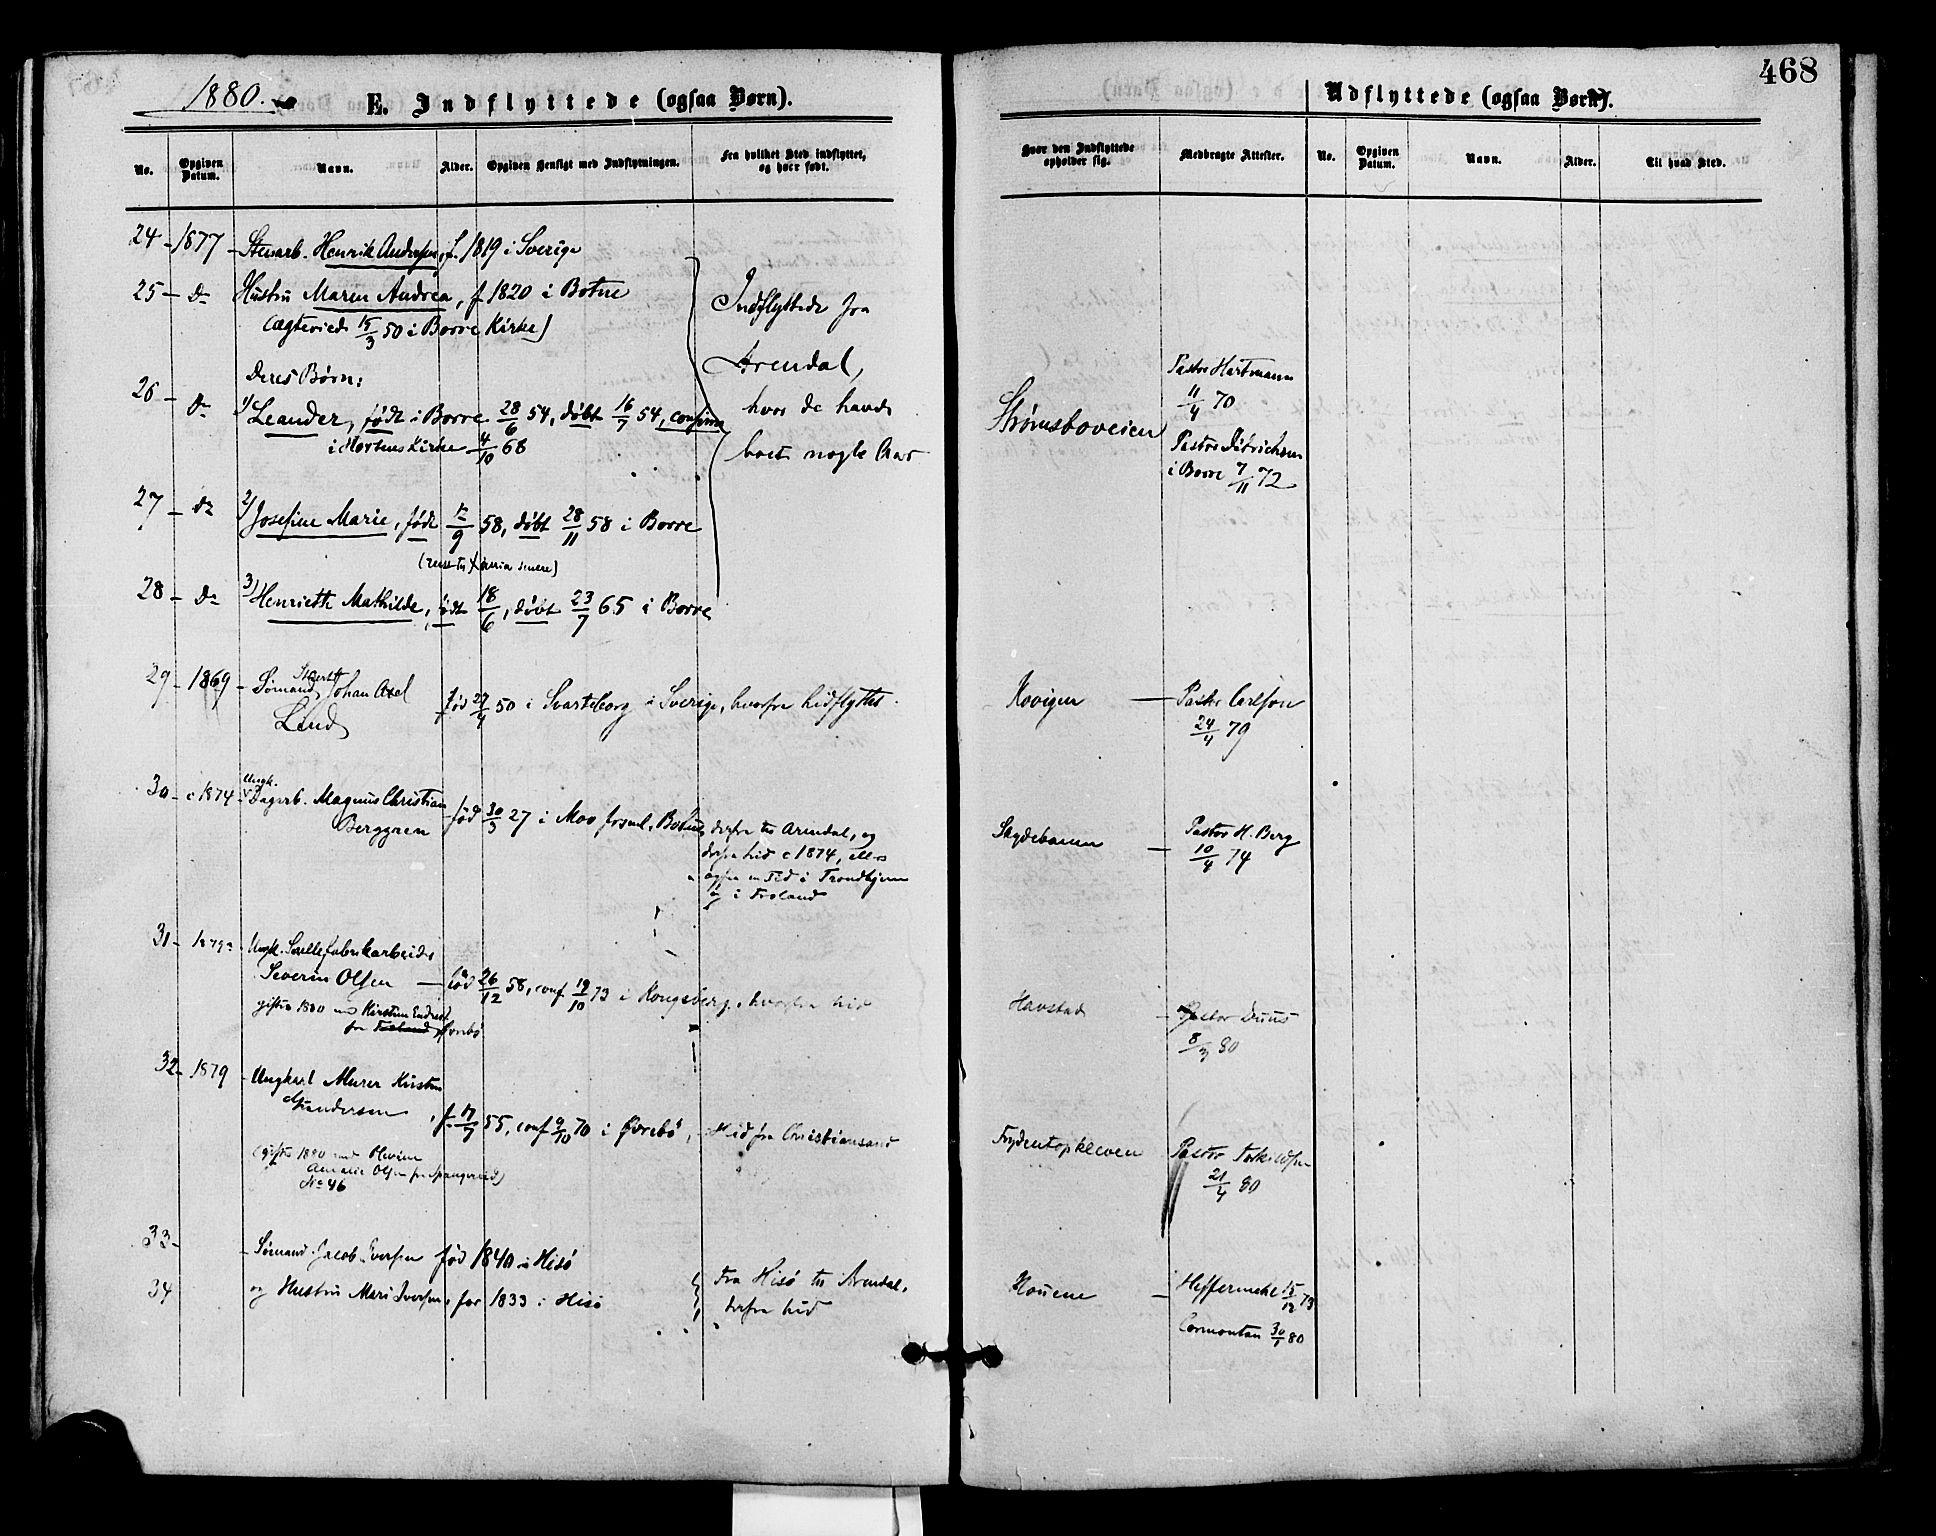 468
1880.
E. Indflyttede (ogsaa Børn).
Udflyttede (ogsaa Børn).
No.
Opgiven Datum.
Navn.
Alder.
Opgiven Hensigt med Indflytningen.
Fra hvilket Sted indflyttet, og hvor født.
Hvor den Indflyttede opholder sig.
Medbragte Attester.
No.
Opgiven Datum.
Navn.
Alder.
Til hvad Sted.
24 - 1877 - Stenarb. Henrik Andersen, f. 1819 i Sverige
25 - Do Hustru Maren Andrea, f 1820 i Botne
(ægteviede 15/3 50 i Borre Kirke)
Indflyttede fra
Arendal,
hvor de havde
boet nogle Aar
Deres Børn:
26 - Do 1/ Leander, født i Borre 28/6 54, døbt 16/7 54, confirm
i Hortens Kirke 4/10 68
Strømsboveien
Pastor Hartmann
11/4 70
Pastor Ditrichsen
i Borre 7/11 72
27 - Do 2/ Josefine Marie, født 12/9 58, døbt 28/11 58 i Borre
28 - Do 3/ Henriette Mathilde, født 18/6, døbt 23/7 65 i Borre
29 - 1869 - Sømand Johan Axel
Lind
fød 27/4 50 i Svarteborg i Sverige, hvorfra hidflyttet.
Kovigen - Pastor Carlson
24/4 79
30 - c 1874 - Ungk. Dagarb. Magnus Christian
Berggren
fød 30/3 27 i Moo forsml. Bohus derfra til Arendal, og
derfra hid c 1874, ellers
en Tid i Trondhjem
i Froland
Skydebanen - Pastor H. Berg
10/4 74
31 - 1879 - Ungk. fabrikarbeider
Severin Olsen - fød 26/12 58, conf 19/10 73 i Kongsberg, hvorfra hid
gift 1880 med Kirstine
fra Froland Øvrebø
Havstad - Pastor Duus
8/3 80
32 - 1879 - Ungkarl Murer
Gundersen, f. 17/7 55, conf 9/10 70 i Øvrebø, - Hid fra Christiansand
(gift 1880 med Olevine
Amalie Olsen fra Spangereid)
No 46
Frydentopkleven Pastor
21/4 80
33 - Sømand Jacob Iversen fød 1840 i Hisø
34 og Hustru Mari Iversen, fød 1833 i Hisø
Fra Hisø til Arendal,
derfra hid
Houene - Heffermehl 15/12 73
Cormontan 30/1 80